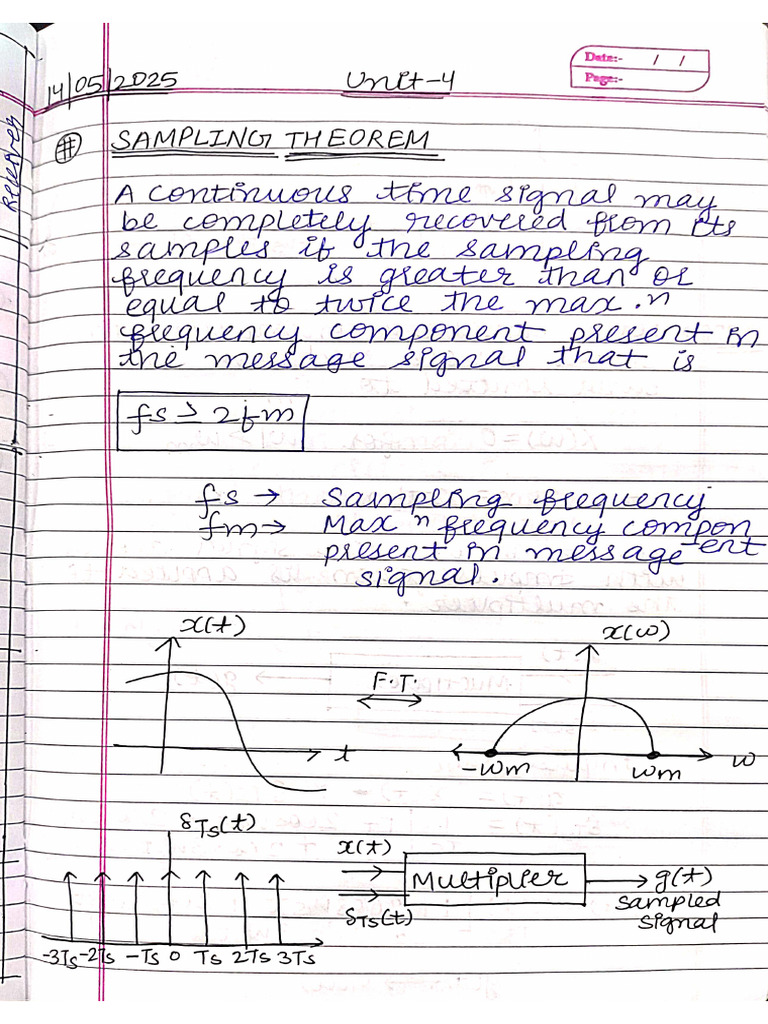 Date:- / /
Page:-
14/05/2025 Unit-4
# SAMPLING THEOREM
A continuous time signal may
be completely recovered from its
samples if the sampling
frequency is greater than or
equal to twice the max.n
frequency component present in
the message signal that is
fs ≥ 2fm
fs → Sampling frequency
fm → Max n frequency compon
ent
present in message
signal.
x(t)
x(w)
F.T.
t
-wm wm w
δTs(t)
x(t)
Multiplier → g(t)
sampled
signal
δTs(t)
-3Ts -2Ts -Ts 0 Ts 2Ts 3Ts